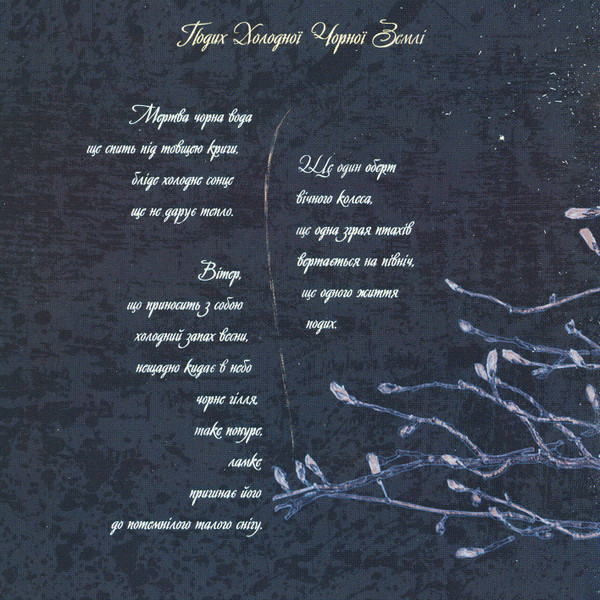 Подих Холодної Чорної Землі
Мертва чорна вода
ще спить під товщею криги,
бліде холодне сонце
ще не дарує тепло.
Вітер,
що приносить з собою
холодний запах весни,
нещадно кидає в небо
чорне гілля,
таке понуре,
ламке
пригинає його
до потемнілого талого снігу.
Ще один оберт
вічного колеса,
ще одна зграя птахів
вертається на північ,
ще одного життя
подих.